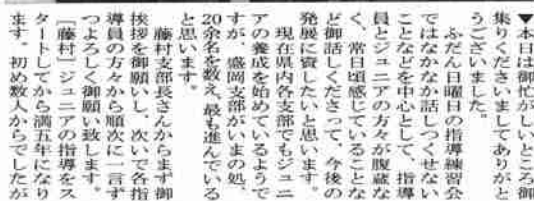 ▼本日は御忙がしいところ御
集りくださいましてありがと
うございました。
ふだん日曜日の指導練習会
ではなかなか話しつくせない
ことなどを中心として、指導
員とジュニアの方々が腹蔵な
く、常日頃感じていることな
ど御話しくださって、今後の
発展に資したいと思います。
現在県内各支部でもジュニ
アの養成を始めているようで
すが、盛岡支部がいまの処、
20余名を数え、最も進んでいる
と思います。
藤村支部長さんからまず御
挨拶を御願いし、次いで各指
導員の方々から順次に一言ず
つよろしく御願い致します。
［藤村］ジュニアの指導をス
タートしてから満五年になり
ます。初め数人からでしたが